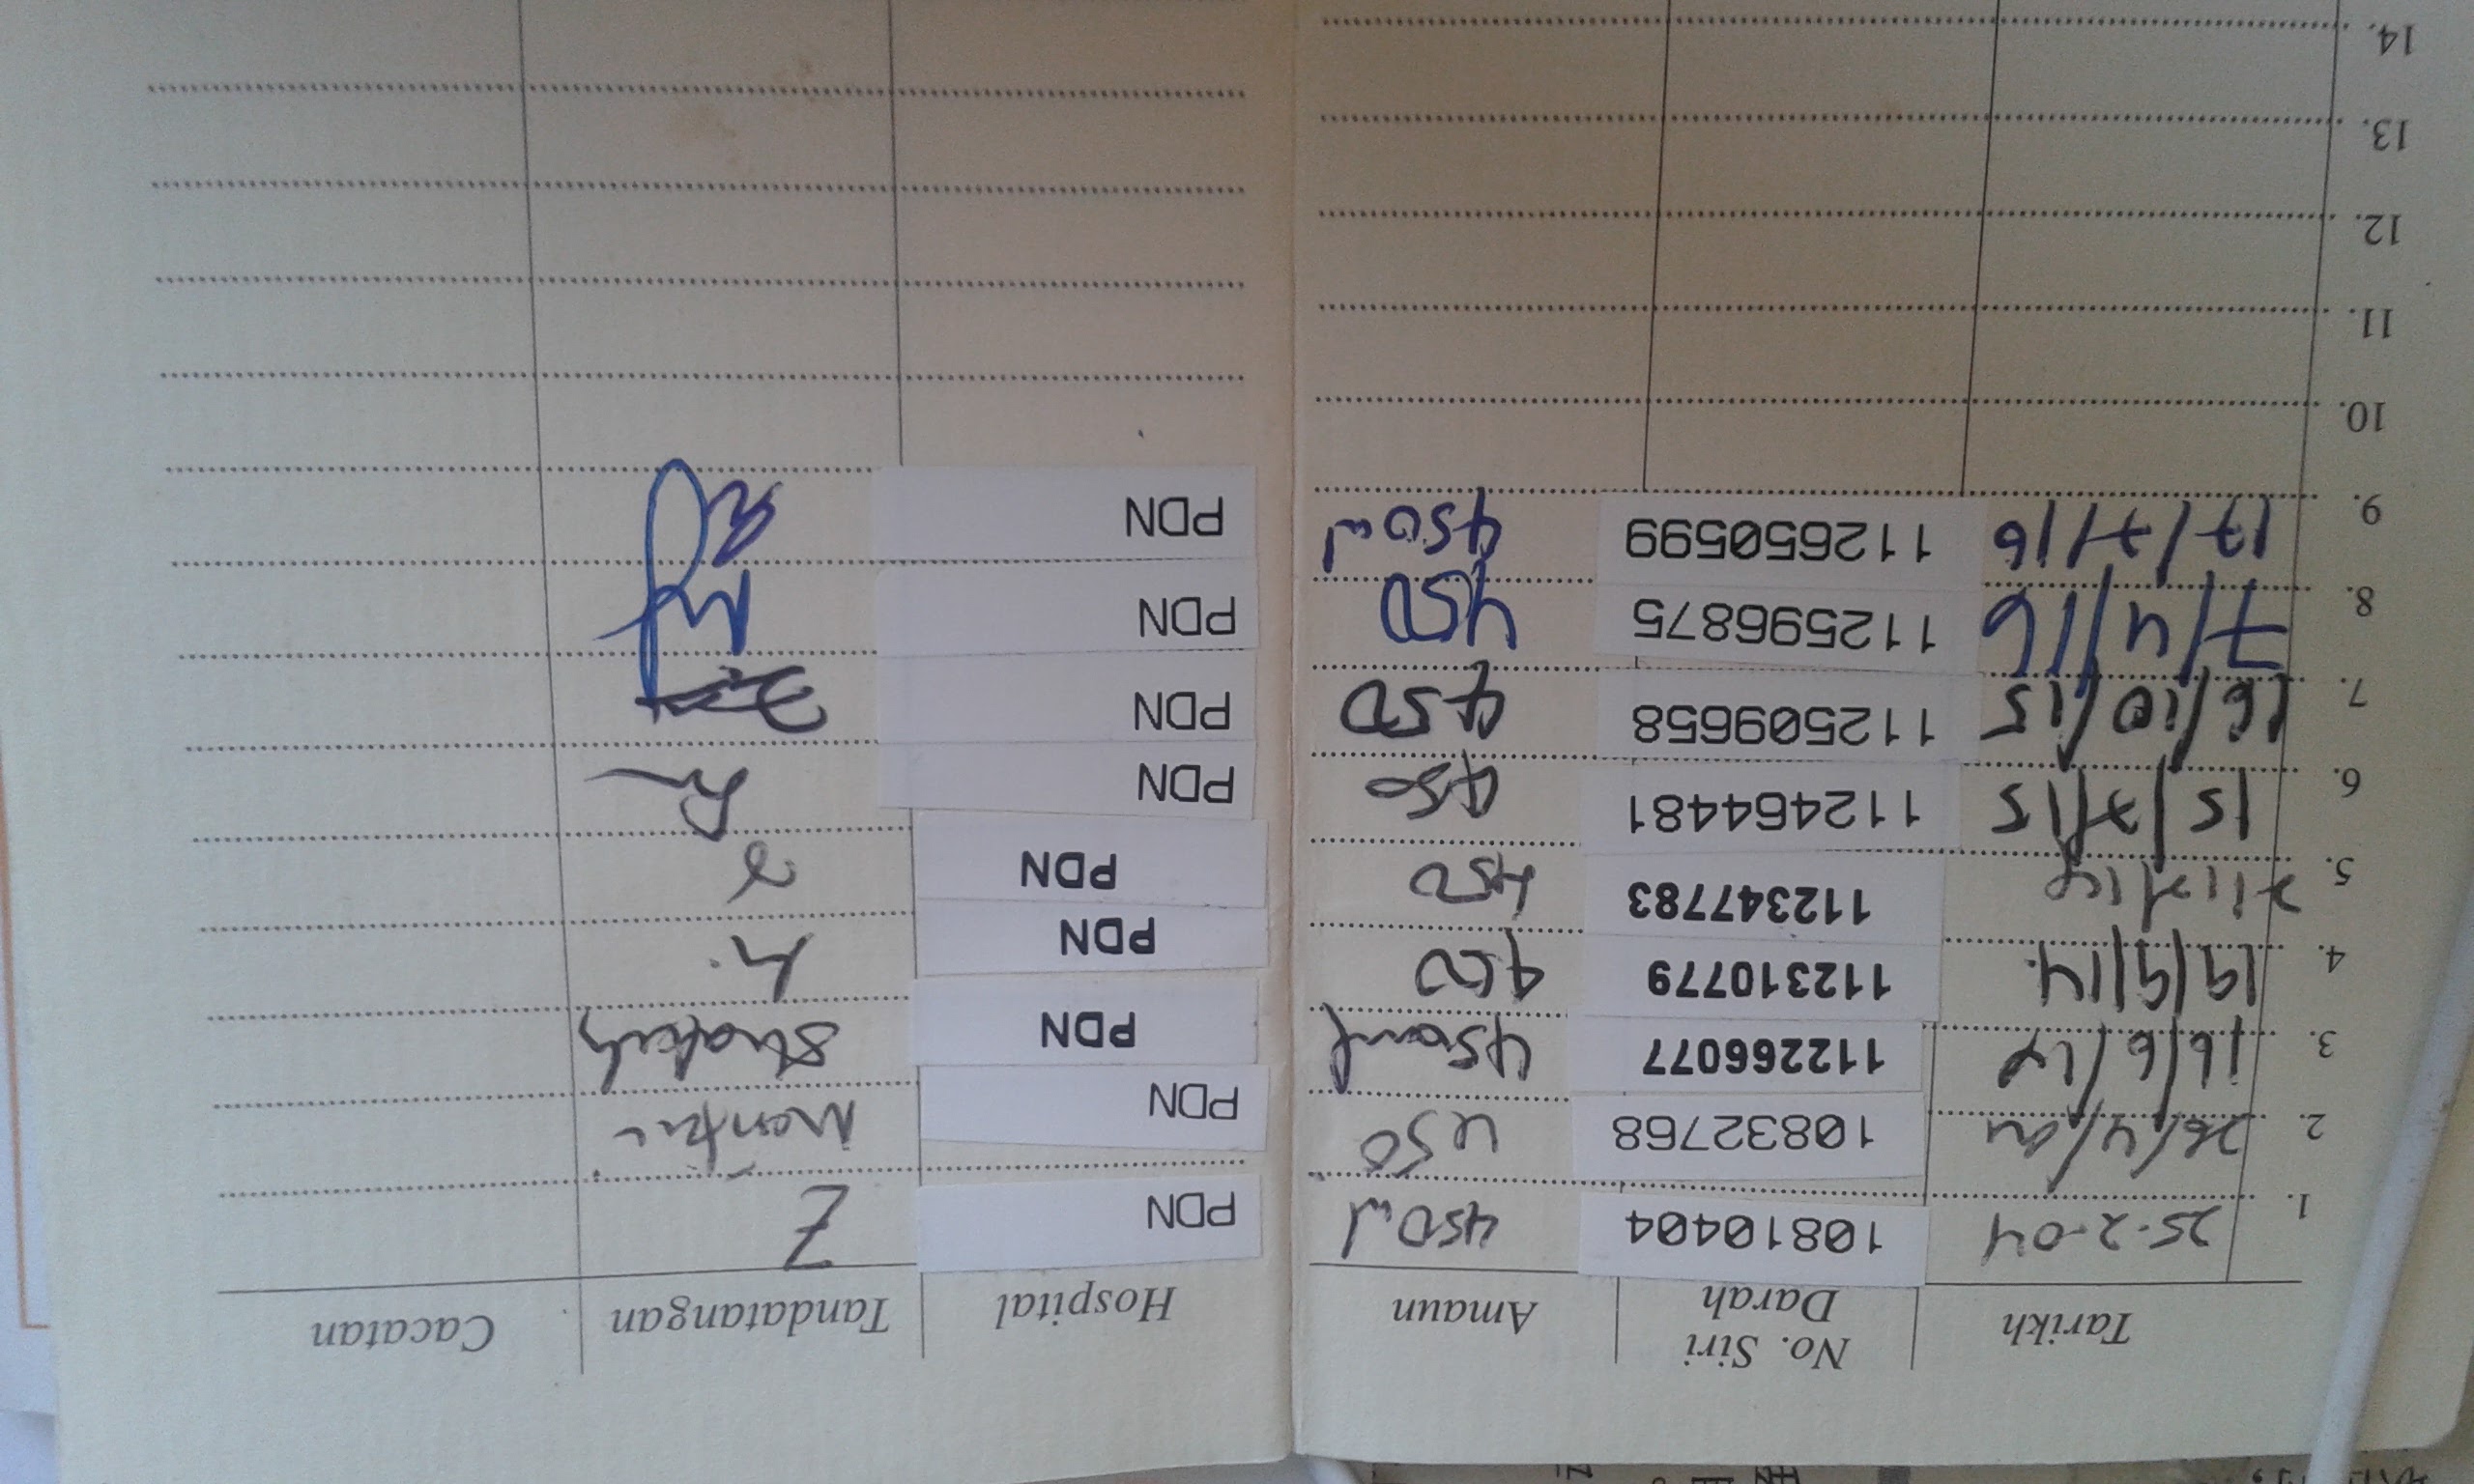 Tarikh No. Siri Darah Amaun Hospital Tandatangan Cacatan
1. 25-2-04 10810404 450ml PDN
2. 26/4/04 10832768 450 PDN
3. 16/6/14 112266077 450ml PDN
4. 19/9/14. 112310779 450 PDN
5. 112347783 450 PDN
6. 15/7/15 112464481 450 PDN
7. 16/10/15 112509658 450 PDN
8. 7/4/16 112596875 450 PDN
9. 17/7/16 112650599 450ml PDN
10.
11.
12.
13.
14.